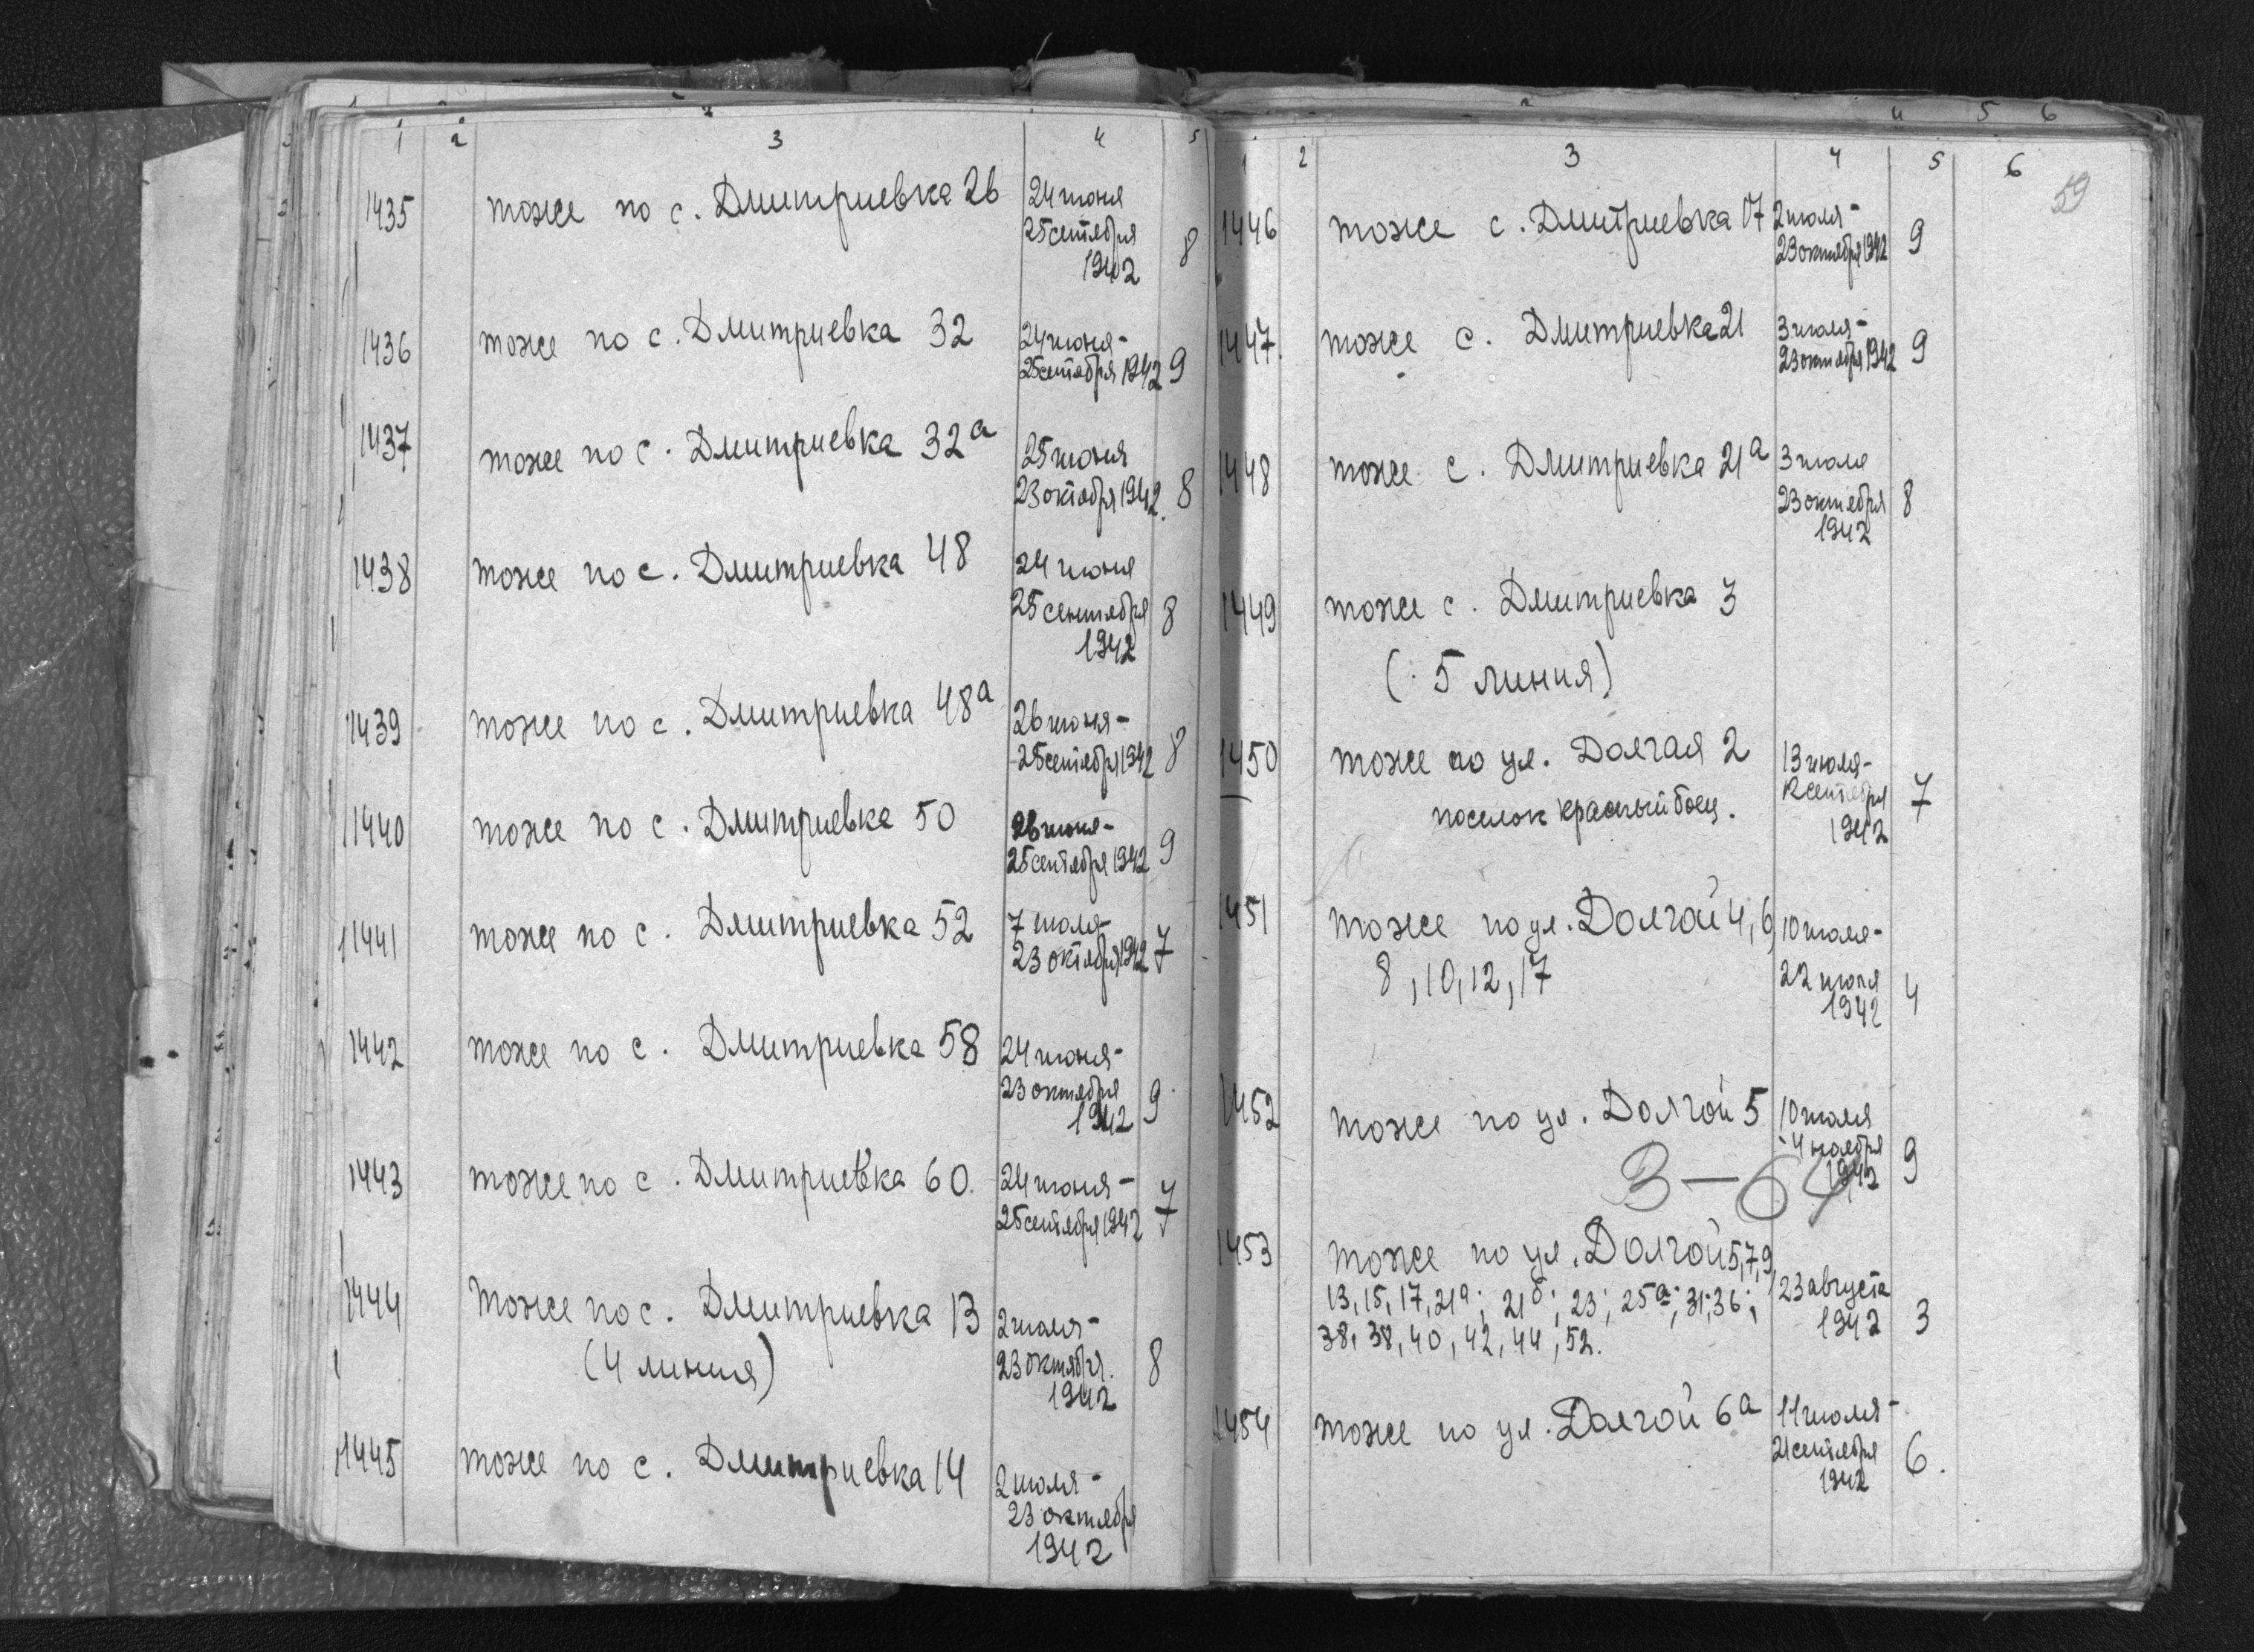 1 2 3 4 5
1435 тоже по с. Дмитриевка 26 24 июня
25 сентября
1942 8
1436 тоже по с. Дмитриевка 32 24 июня-
25 сентября 1942 9
1437 тоже по с. Дмитриевка 32а 25 июня
23 октября 1942. 8
1438 тоже по с. Дмитриевка 48 24 июня
25 сентября 8
1942
1439 тоже по с. Дмитриевка 48а 26 июня-
25 сентября 1942 8
1440 тоже по с. Дмитриевка 50 26 июня-
25 сентября 1942 9
1441 тоже по с. Дмитриевка 52 7 июля-
23 октября 1942 7
1442 тоже по с. Дмитриевка 58 24 июня-
23 октября 9
1942
1443 тоже по с. Дмитриевка 60. 24 июня-
25 сентября 1942 7
1444 тоже по с. Дмитриевка 13 2 июля-
(4 линия) 23 октября. 8
1942
1445 тоже по с. Дмитриевка 14 2 июля-
23 октября
1942
4 5 6
1 2 3 4 5 6
59
1446 тоже с. Дмитриевка 17 2 июля-
23 октября 1942 9
1447. тоже с. Дмитриевка 21 3 июля-
23 октября 1942 9
1448 тоже с. Дмитриевка 21а 3 июля
23 октября 8
1942
1449 тоже с. Дмитриевка 3
(5 линия)
1450 тоже по ул. Долгая 2 13 июля-
поселок красный боец. 12 сентября 7
1942
1451 тоже по ул. Долгой 4, 6, 10 июля-
8, 10, 12, 17 22 июля 4
1942
1452 тоже по ул. Долгой 5 10 июля
-4 ноября 9
1942
3-64
1453 тоже по ул. Долгой 5, 7, 9,
13, 15, 17, 21а; 21б; 23; 25а; 31; 36; 23 августа
38, 38, 40, 42, 44, 52. 1942 3
1454 тоже по ул. Долгой 6а 11 июля-
21 сентября 6.
1942